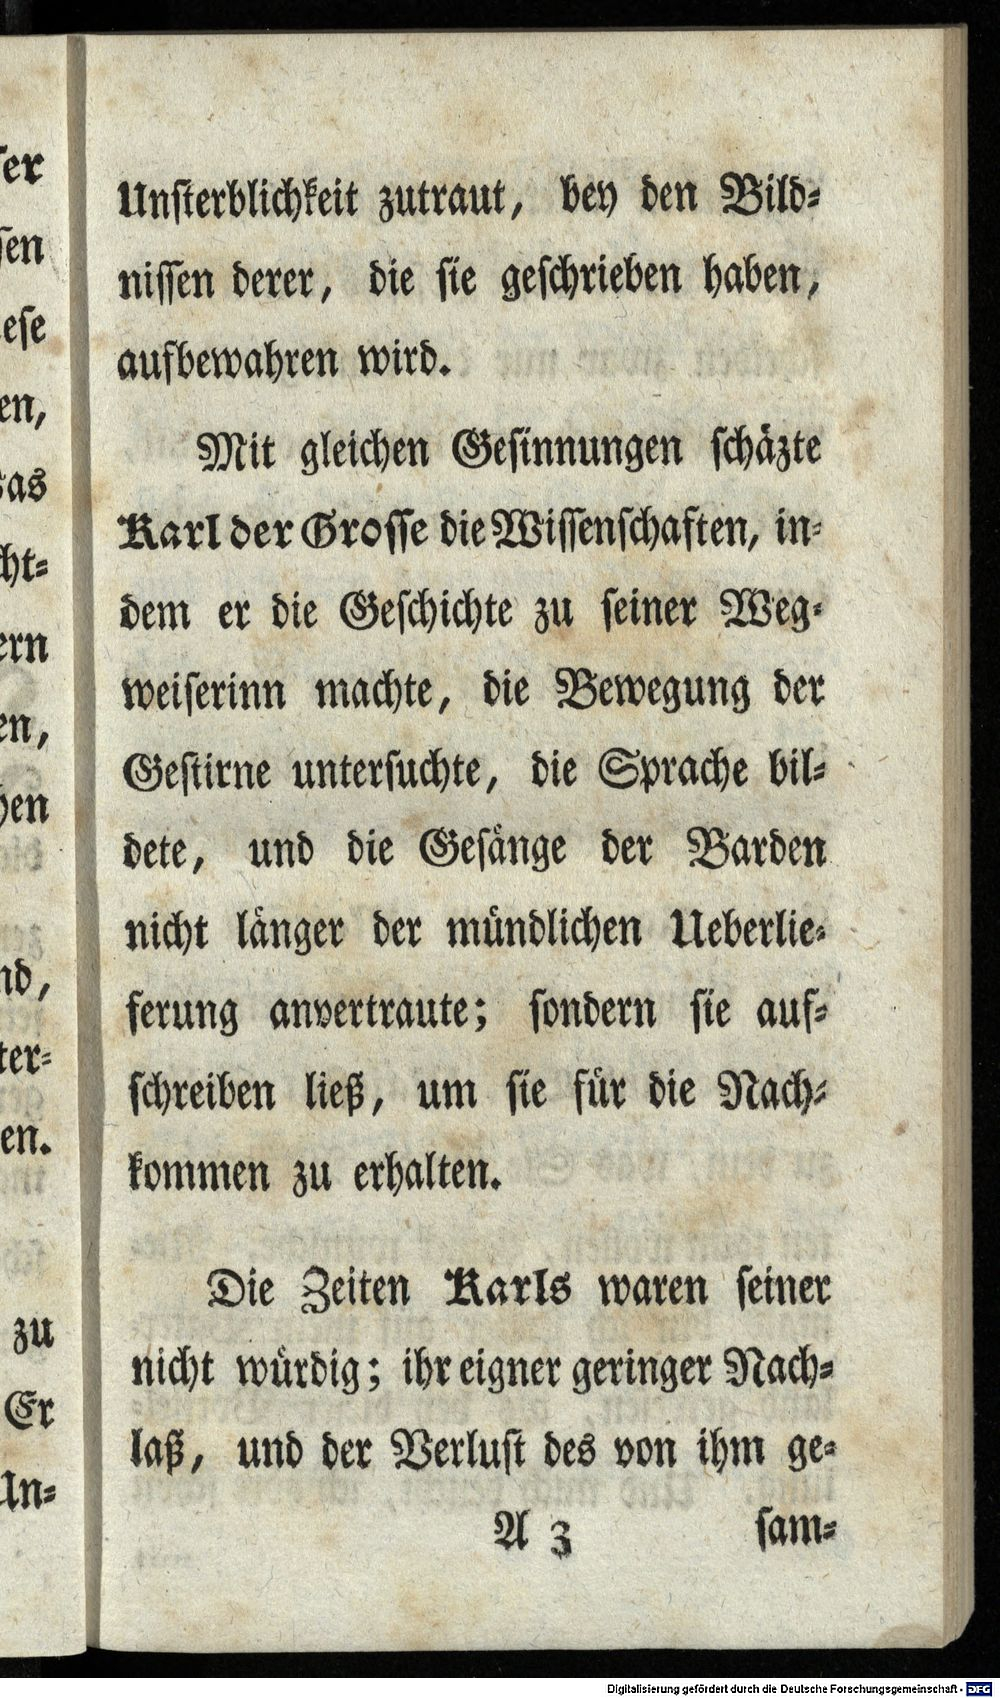 Unsterblichkeit zutraut, bey den Bild-
nissen derer, die sie geschrieben haben,
aufbewahren wird.
Mit gleichen Gesinnungen schäzte
Karl der Grosse die Wissenschaften, in-
dem er die Geschichte zu seiner Weg-
weiserinn machte, die Bewegung der
Gestirne untersuchte, die Sprache bil-
dete, und die Gesänge der Barden
nicht länger der mündlichen Ueberlie-
ferung anvertraute; sondern sie auf-
schreiben ließ, um sie für die Nach-
kommen zu erhalten.
Die Zeiten Karls waren seiner
nicht würdig; ihr eigner geringer Nach-
laß, und der Verlust des von ihm ge-
A 3 sam-
Digitalisierung gefördert durch die Deutsche Forschungsgemeinschaft - DFG